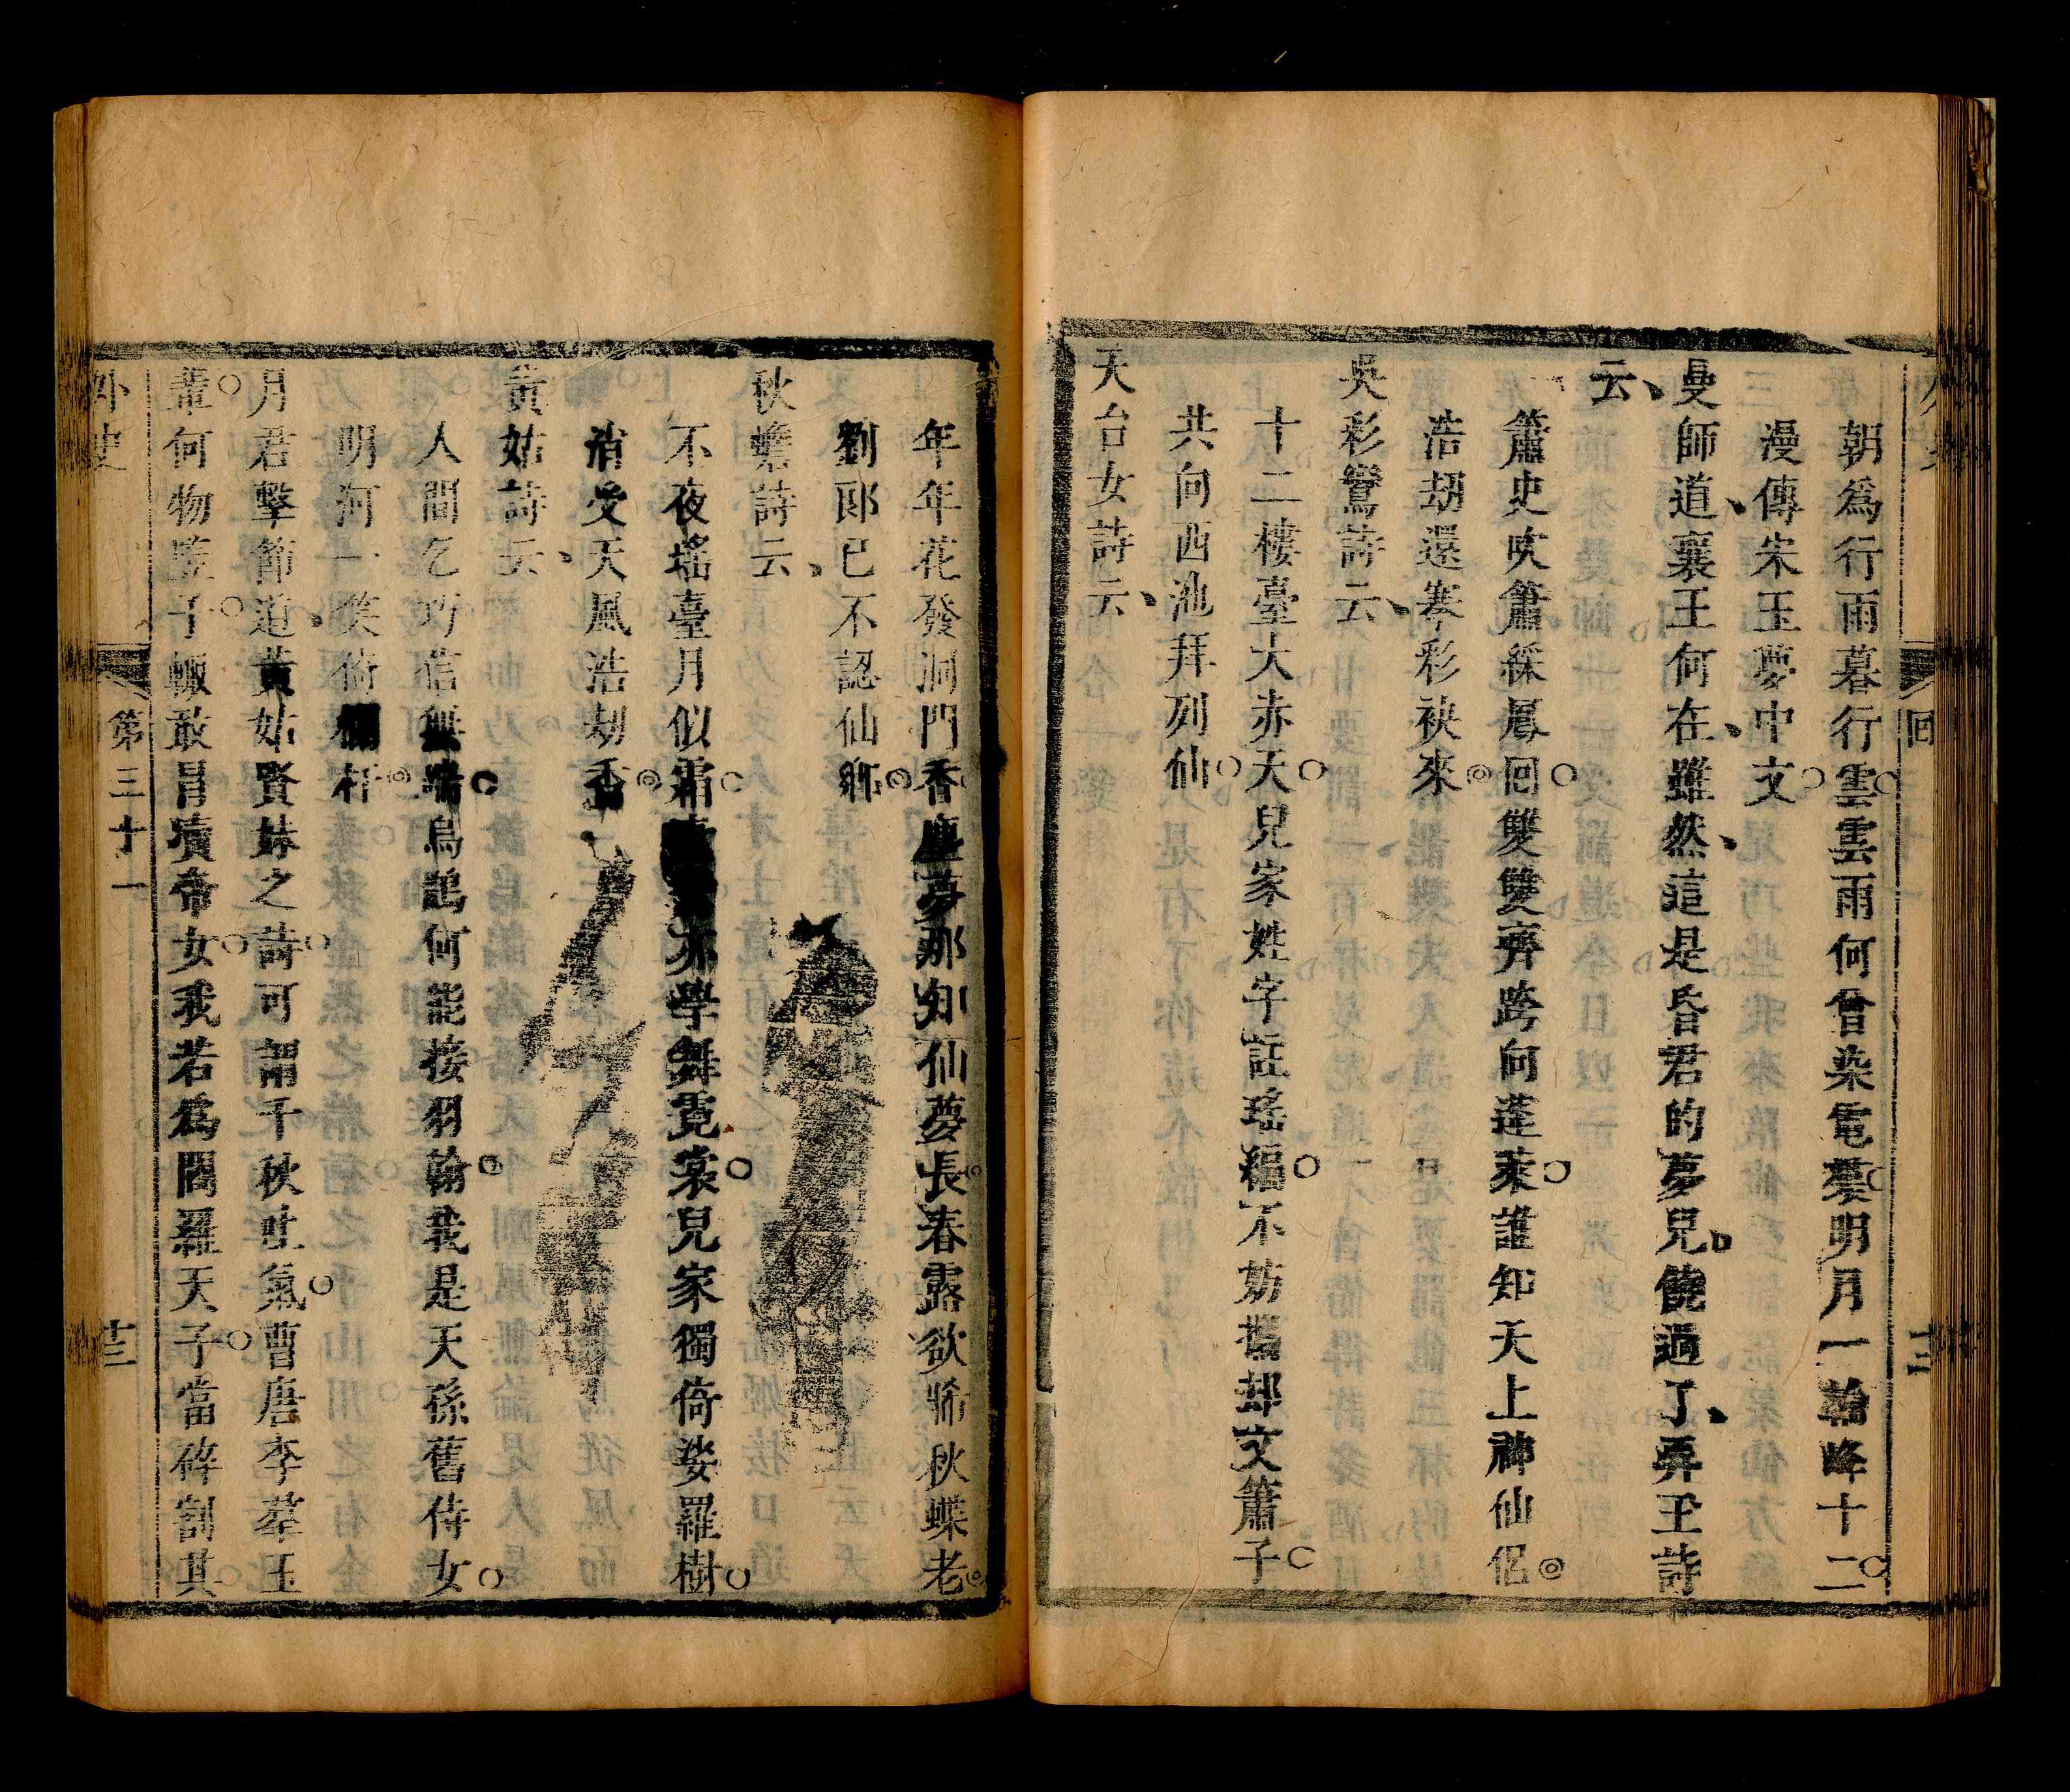 朝爲行雨暮行雲雲雨何曾染電雯明月一輪峰十二
漫傳宋玉夢中文
曼師道襄王何在雖然這是昏君的夢兒饒過了弄玉詩
云
簫史吹簫綵鳳回雙雙齊跨向蓬萊誰知天上神仙侶
浩劫還搴彩袂來
吳彩鸞詩云
十二樓臺大赤天兒家姓字註瑤編不妨攜却文簫子
共向西池拜列仙
天台女詩云
年年花發洞門香塵夢那知仙夢長春露欲晞秋蝶老
劉郎已不認仙
秋蟾詩云
不夜瑤臺月似霜亦學舞霓裳兒家獨倚娑羅樹
消受天風浩劫香
黃姑詩云
人間乞巧信無端烏鵲何能接羽翰我是天孫舊侍女
明河一笑倚欄杆
月君擊節道黃姑賢妹之詩可謂千秋吐氣曹唐李羣玉
輩何物豎子輙敢冒瀆帝女我若爲閻羅天子當碎割其
外史
第三十一
十三